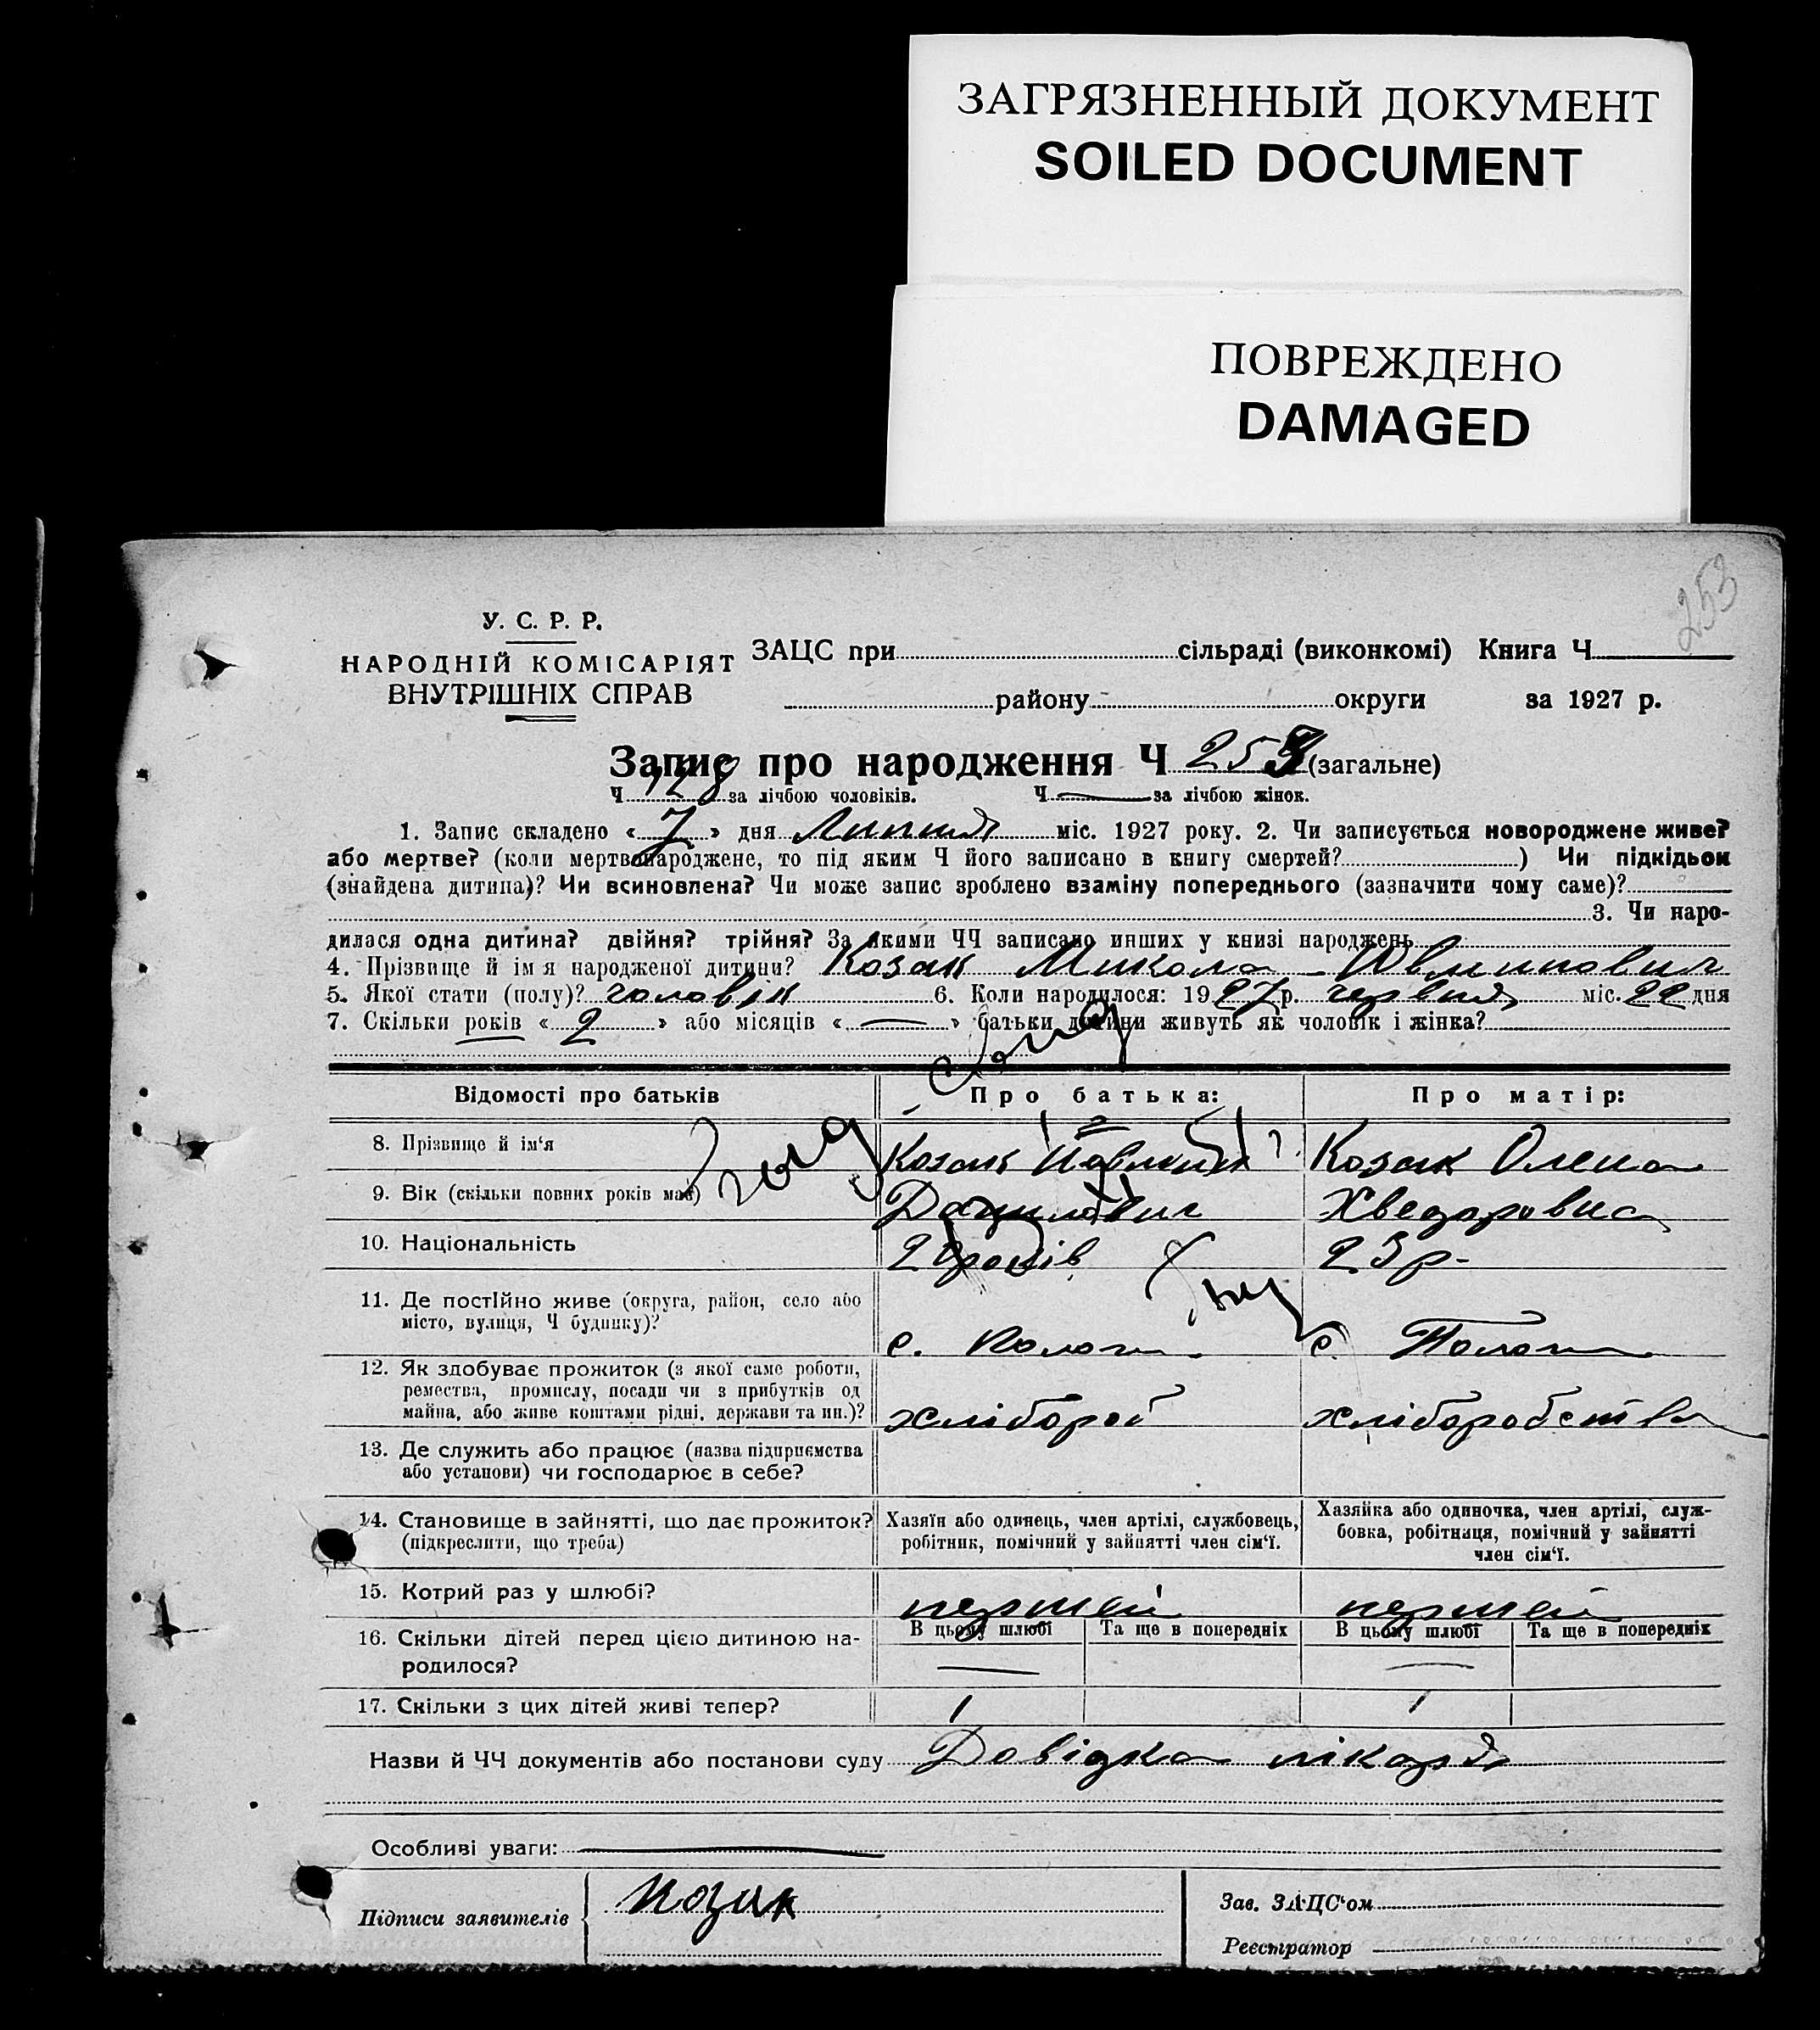 ЗАГРЯЗНЕННЫЙ ДОКУМЕНТ
SOILED DOCUMENT
ПОВРЕЖДЕНО
DAMAGED
253
У. С. Р. Р.
НАРОДНІЙ КОМІСАРІЯТ
ВНУТРІШНІХ СПРАВ
ЗАЦС при сільраді (виконкомі) Книга Ч
району округи за 1927 р.
Запис про народження Ч 253 (загальне)
Ч 128 за лічбою чоловіків. Ч — за лічбою жінок.
1. Запис складено « 7 » дня Липня міс. 1927 року. 2. Чи записується новороджене живе?
або мертве? (коли мертвонароджене, то під яким Ч його записано в книгу смертей? ) Чи підкідьок
(знайдена дитина)? Чи всиновлена? Чи може запис зроблено взаміну попереднього (зазначити чому саме)?
3. Чи наро-
дилася одна дитина? двійня? трійня? За якими ЧЧ записано инших у книзі народжень
4. Прізвище й ім я народженої дитини? Козак Микола
5. Якої стати (полу)? чоловік 6. Коли народилося: 1927 р. червня міс. 22 дня
7. Скільки років « 2 » або місяців « — » батьки дитини живуть як чоловік і жінка?
Відомості про батьків
Про батька:
Про матір:
8. Прізвище й ім‘я
Козак
Козак Олена
9. Вік (скільки повних років має)
Данилович
Хведоровна
10. Національність
років
23 р.
11. Де постійно живе (округа, район, село або
місто, вулиця, Ч будинку)?
с. Пологи
с. Пологи
12. Як здобуває прожиток (з якої саме роботи,
ремества, промислу, посади чи з прибутків од
майна, або живе коштами рідні, держави та ин.)?
хлібороб
хліборобство
13. Де служить або працює (назва підприємства
або установи) чи господарює в себе?
14. Становище в зайнятті, що дає прожиток?
(підкреслити, що треба)
Хазяїн або одинець, член артілі, службовець,
робітник, помічний у зайнятті член сім‘ї.
Хазяйка або одиночка, член артілі, служ-
бовка, робітниця, помічний у зайнятті
член сім‘ї.
15. Котрий раз у шлюбі?
первей
первей
16. Скільки дітей перед цією дитиною на-
родилося?
В цьому шлюбі Та ще в попередніх
В цьому шлюбі Та ще в попередніх
— —
17. Скільки з цих дітей живі тепер?
1 1
Назви й ЧЧ документів або постанови суду Довідка лікаря
Особливі уваги: —
Підписи заявителів
Козак
Зав. ЗАЦС‘ом
Реєстратор